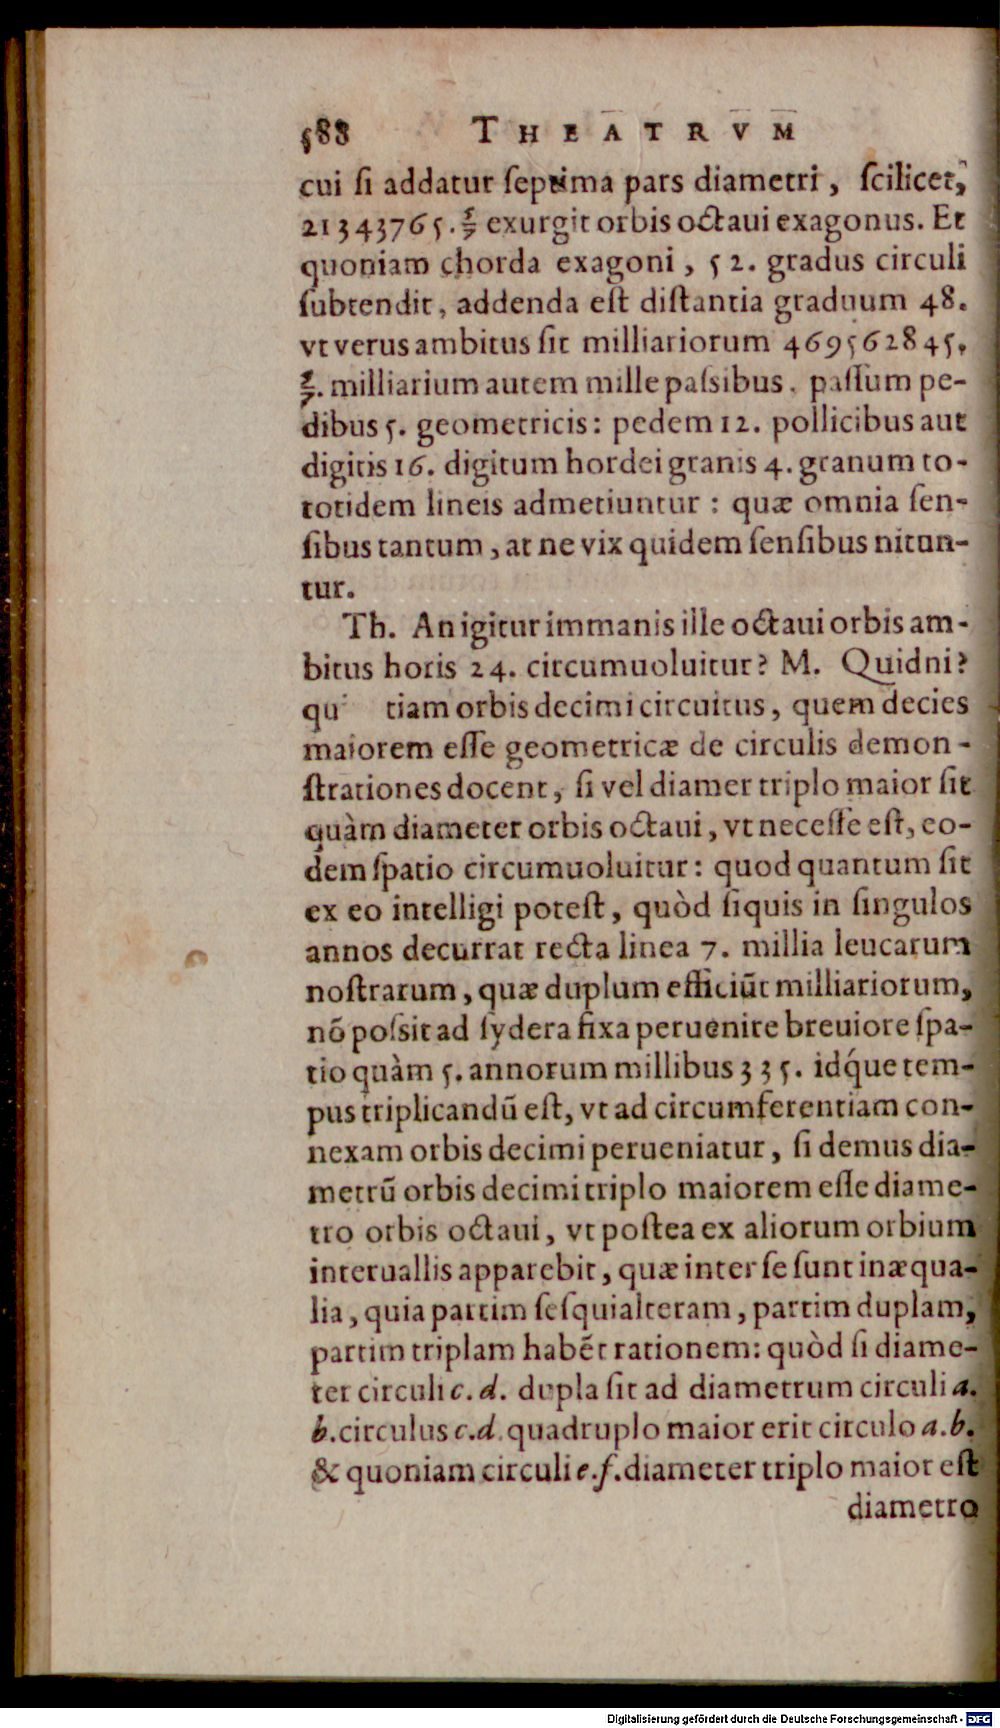 588 THEATRVM
cui ſi addatur ſeptima pars diametri, ſcilicet,
21343765. 5/7 exurgit orbis octaui exagonus. Et
quoniam chorda exagoni, 52. gradus circuli
ſubtendit, addenda eſt diſtantia graduum 48.
vt verus ambitus ſit milliariorum 469562845.
5/7. milliarium autem mille paſsibus. paſſum pe-
dibus 5. geometricis: pedem 12. pollicibus aut
digitis 16. digitum hordei granis 4. granum to-
totidem lineis admetiuntur: quæ omnia ſen-
ſibus tantum, at ne vix quidem ſenſibus nitun-
tur.
Th. An igitur immanis ille octaui orbis am-
bitus horis 24. circumuoluitur? M. Quidni?
qu tiam orbis decimi circuitus, quem decies
maiorem eſſe geometricæ de circulis demon-
ſtrationes docent, ſi vel diamer triplo maior ſit
quàm diameter orbis octaui, vt neceſſe eſt, eo-
dem ſpatio circumuoluitur: quod quantum ſit
ex eo intelligi poteſt, quòd ſiquis in ſingulos
annos decurrat recta linea 7. millia leucarum
noſtrarum, quæ duplum efficiũt milliariorum,
nõ poſsit ad ſydera fixa peruenire breuiore ſpa-
tio quàm 5. annorum millibus 335. idq́ue tem-
pus triplicandũ eſt, vt ad circumferentiam con-
nexam orbis decimi perueniatur, ſi demus dia-
metrũ orbis decimi triplo maiorem eſſe diame-
tro orbis octaui, vt poſtea ex aliorum orbium
interuallis apparebit, quæ inter ſe ſunt inæqua-
lia, quia partim ſeſquialteram, partim duplam,
partim triplam habẽt rationem: quòd ſi diame-
ter circuli c. d. dupla ſit ad diametrum circuli a.
b. circulus c.d. quadruplo maior erit circulo a.b.
& quoniam circuli e.f. diameter triplo maior eſt
diametro
Digitalisierung gefördert durch die Deutsche Forschungsgemeinschaft - DFG